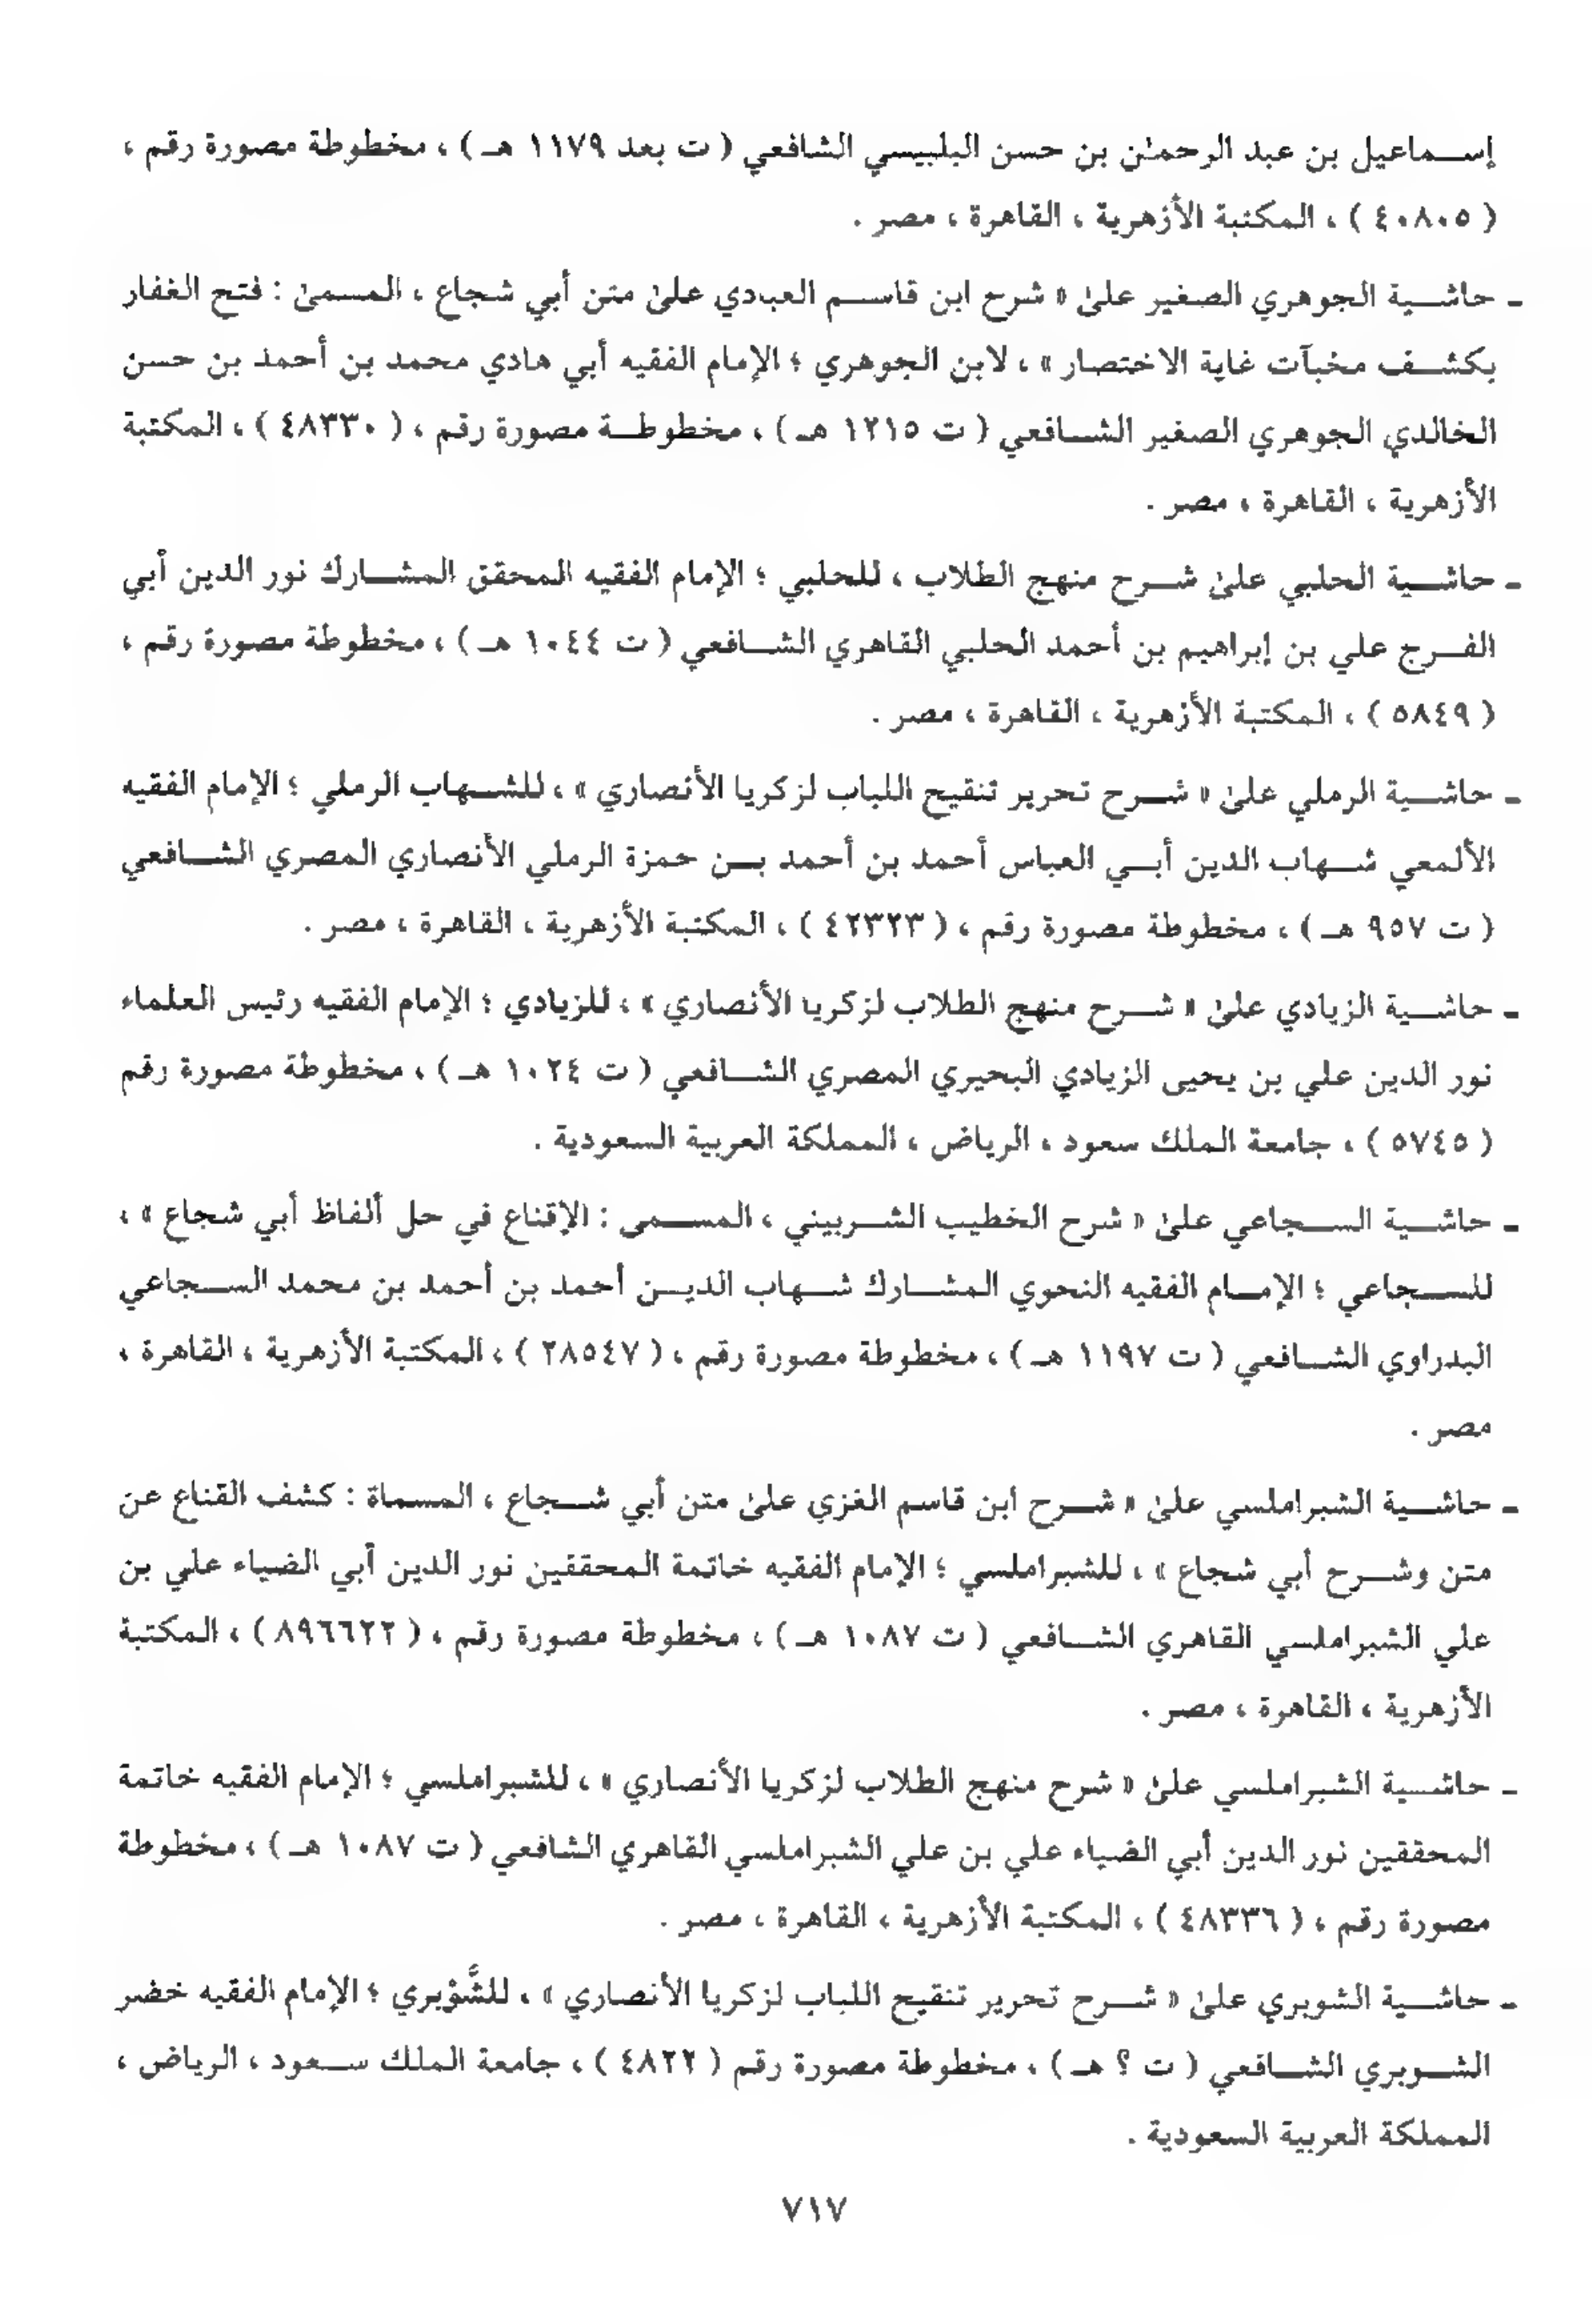 إسماعيل بن عبد الرحمٰن بن حسن البلبيسي الشافعي ( ت بعد ١١٧٩ هـ ) ، مخطوطة مصورة رقم ،
( ٤٠٨٠٥ ) ، المكتبة الأزهرية ، القاهرة ، مصر .
ـ حاشية الجوهري الصغير علىٰ « شرح ابن قاسم العبادي علىٰ متن أبي شجاع ، المسمىٰ : فتح الغفار
بكشف مخبآت غاية الاختصار » ، لابن الجوهري ؛ الإمام الفقيه أبي هادي محمد بن أحمد بن حسن
الخالدي الجوهري الصغير الشافعي ( ت ١٢١٥ هـ ) ، مخطوطة مصورة رقم ، ( ٤٨٣٣٠ ) ، المكتبة
الأزهرية ، القاهرة ، مصر .
ـ حاشية الحلبي علىٰ شرح منهج الطلاب ، للحلبي ؛ الإمام الفقيه المحقق المشارك نور الدين أبي
الفرج علي بن إبراهيم بن أحمد الحلبي القاهري الشافعي ( ت ١٠٤٤ هـ ) ، مخطوطة مصورة رقم ،
( ٥٨٤٩ ) ، المكتبة الأزهرية ، القاهرة ، مصر .
ـ حاشية الرملي علىٰ « شرح تحرير تنقيح اللباب لزكريا الأنصاري » ، للشهاب الرملي ؛ الإمام الفقيه
الألمعي شهاب الدين أبي العباس أحمد بن أحمد بن حمزة الرملي الأنصاري المصري الشافعي
( ت ٩٥٧ هـ ) ، مخطوطة مصورة رقم ، ( ٤٢٣٢٣ ) ، المكتبة الأزهرية ، القاهرة ، مصر .
ـ حاشية الزيادي علىٰ « شرح منهج الطلاب لزكريا الأنصاري » ، للزيادي ؛ الإمام الفقيه رئيس العلماء
نور الدين علي بن يحيى الزيادي البحيري المصري الشافعي ( ت ١٠٢٤ هـ ) ، مخطوطة مصورة رقم
( ٥٧٤٥ ) ، جامعة الملك سعود ، الرياض ، المملكة العربية السعودية .
ـ حاشية السجاعي علىٰ « شرح الخطيب الشربيني ، المسمى : الإقناع في حل ألفاظ أبي شجاع » ،
للسجاعي ؛ الإمام الفقيه النحوي المشارك شهاب الدين أحمد بن أحمد بن محمد السجاعي
البدراوي الشافعي ( ت ١١٩٧ هـ ) ، مخطوطة مصورة رقم ، ( ٢٨٥٤٧ ) ، المكتبة الأزهرية ، القاهرة ،
مصر .
ـ حاشية الشبراملسي علىٰ « شرح ابن قاسم الغزي علىٰ متن أبي شجاع ، المسماة : كشف القناع عن
متن وشرح أبي شجاع » ، للشبراملسي ؛ الإمام الفقيه خاتمة المحققين نور الدين أبي الضياء علي بن
علي الشبراملسي القاهري الشافعي ( ت ١٠٨٧ هـ ) ، مخطوطة مصورة رقم ، ( ٨٩٦٦٢٢ ) ، المكتبة
الأزهرية ، القاهرة ، مصر .
ـ حاشية الشبراملسي علىٰ « شرح منهج الطلاب لزكريا الأنصاري » ، للشبراملسي ؛ الإمام الفقيه خاتمة
المحققين نور الدين أبي الضياء علي بن علي الشبراملسي القاهري الشافعي ( ت ١٠٨٧ هـ ) ، مخطوطة
مصورة رقم ، ( ٤٨٣٣٦ ) ، المكتبة الأزهرية ، القاهرة ، مصر .
ـ حاشية الشوبري علىٰ « شرح تحرير تنقيح اللباب لزكريا الأنصاري » ، للشَّوْبري ؛ الإمام الفقيه خضر
الشوبري الشافعي ( ت ؟ هـ ) ، مخطوطة مصورة رقم ( ٤٨٢٢ ) ، جامعة الملك سعود ، الرياض ،
المملكة العربية السعودية .
٧١٧